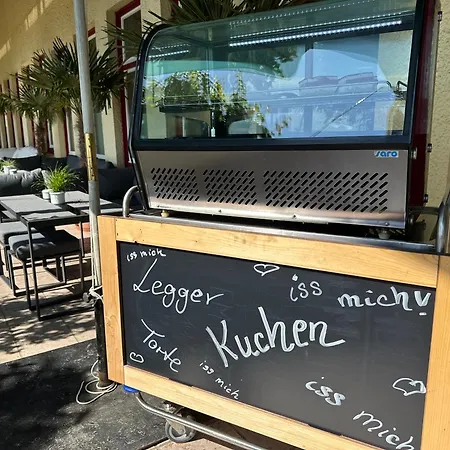 saro
iss mich
Legger
iss mich!
Torte
Kuchen
iss mich
iss
mich